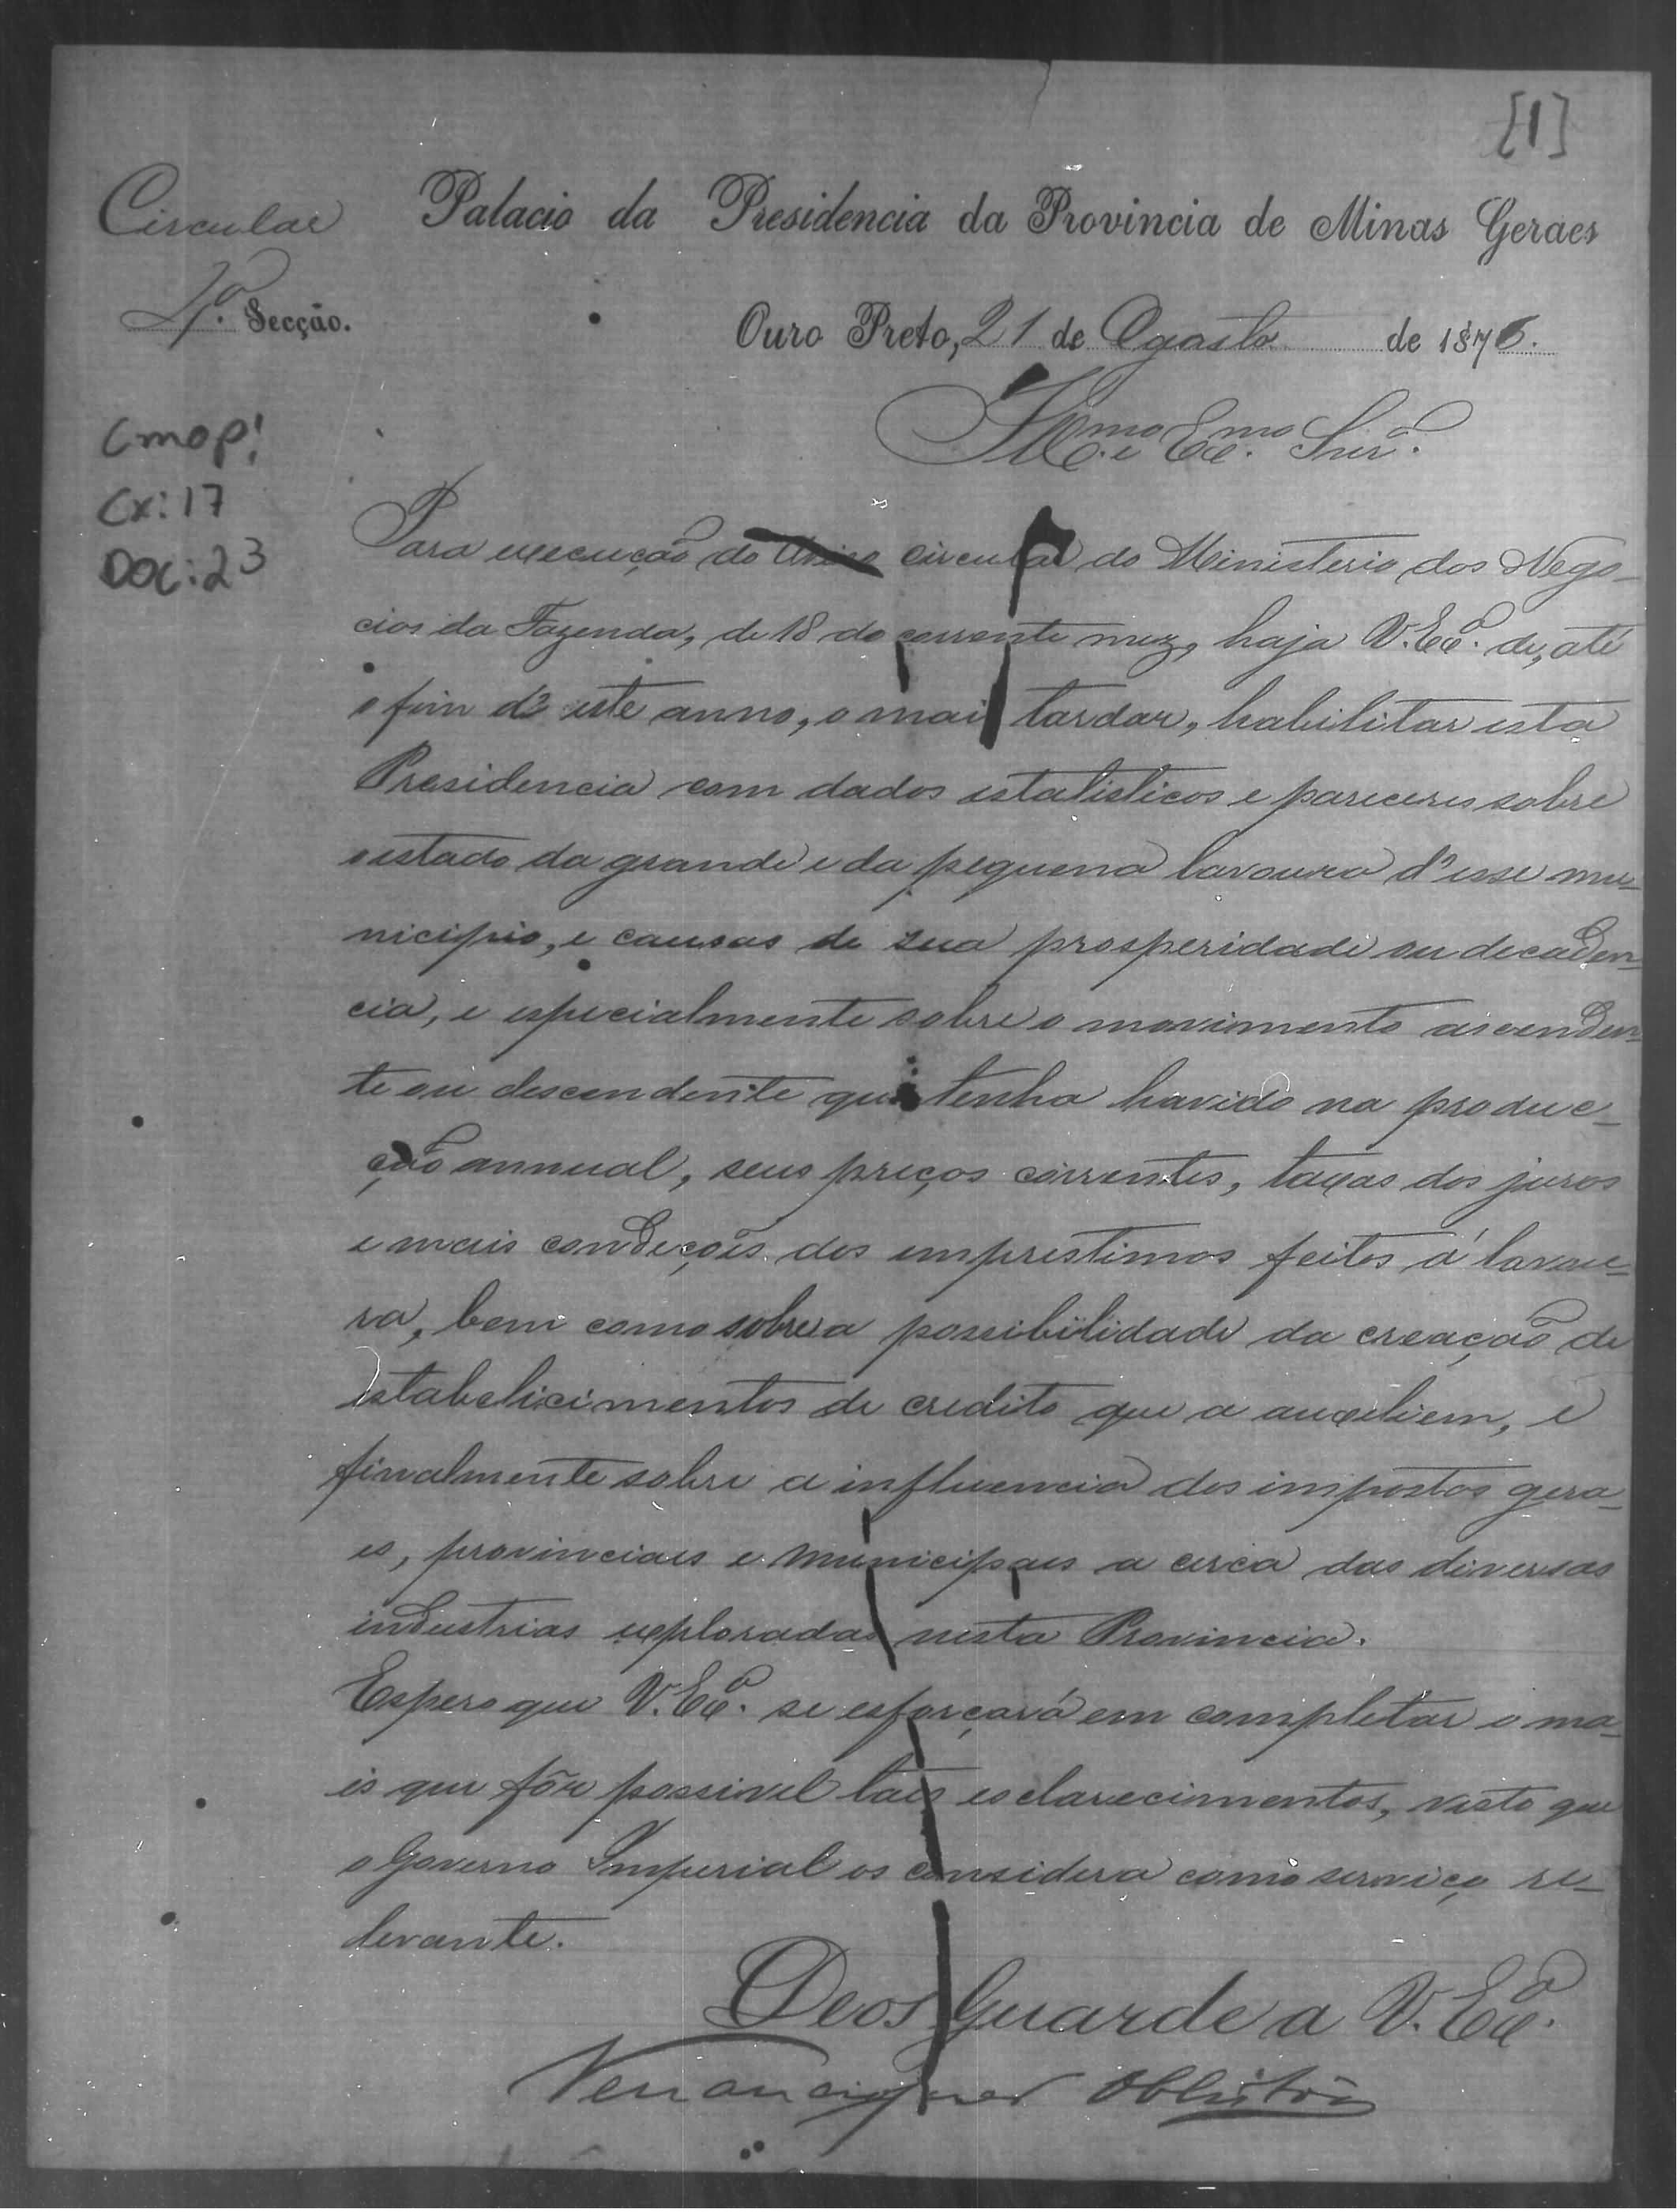 [1]
Circular Palacio da Presidencia da Provincia de Minas Geraes
Secção.
Ouro Preto, 21 de Agosto de 1876.
Cmop!
Cx: 17
Doc: 23
Illmo. e Exmo. Snr.
Para execução do Aviso circular do Ministerio dos Nego-
cios da Fazenda, de 18 do corrente mez, haja V. Exa. de, até
o fim d'este anno, o mais tardar, habilitar esta
Presidencia com dados estatisticos e pareceres sobre
o estado da grande e da pequena lavoura d'esse mu-
nicipio, e causas de sua prosperidade ou decaden-
cia, e especialmente sobre o movimento ascenden-
te ou descendente que tenha havido na produc-
ção annual, seus preços correntes, taxas dos juros
e mais condições dos emprestimos feitos á lavou-
ra, bem como sobre a possibilidade da creação de
estabelicimentos de credito que a auxeliem, e
finalmente sobre a influencia dos impostos gera-
es, provinciaes e municipaes a cerca das diversas
industrias exploradas nesta Provincia.
Espero que V. Exa. se esforçará em completar o ma-
is que fôr possivel taes esclarecimentos, visto que
o Governo Imperial os considera como serviço re-
levante.
Deos Guarde a V. Exa.